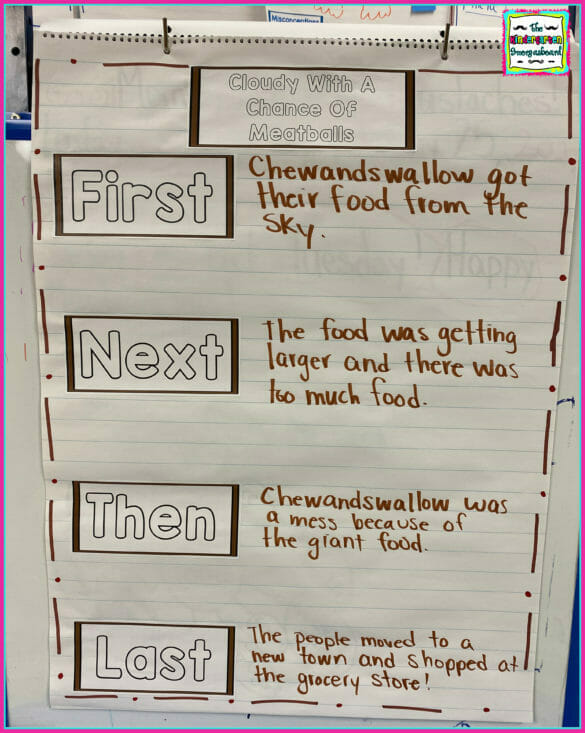 Misconceptions
The
Kindergarten
Smorgasboard
Cloudy With A
Chance Of
Meatballs
First
Chewandswallow got
their food from the
sky.
Next
The food was getting
larger and there was
too much food.
Then
Chewandswallow was
a mess because of
the giant food.
Last
The people moved to a
new town and shopped at
the grocery store!